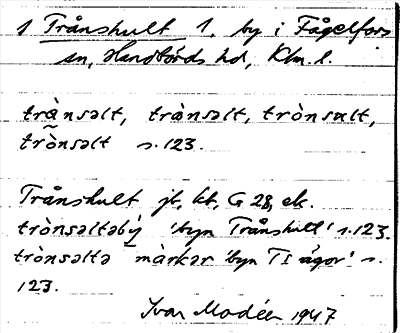 1 Trånshult 1, by i Fågelfors
sn, Handbörds hd, Klm. l.
trànsəlt, trånsəlt, trònsult,
trònsəlt s. 123.
Trånshult jb, kt, G 28, ek.
trònsəltəbý 'byn Trånshult' s. 123.
trònsəltə màrkər 'byn T:s ägor' s.
123.
Ivar Modéer 1947